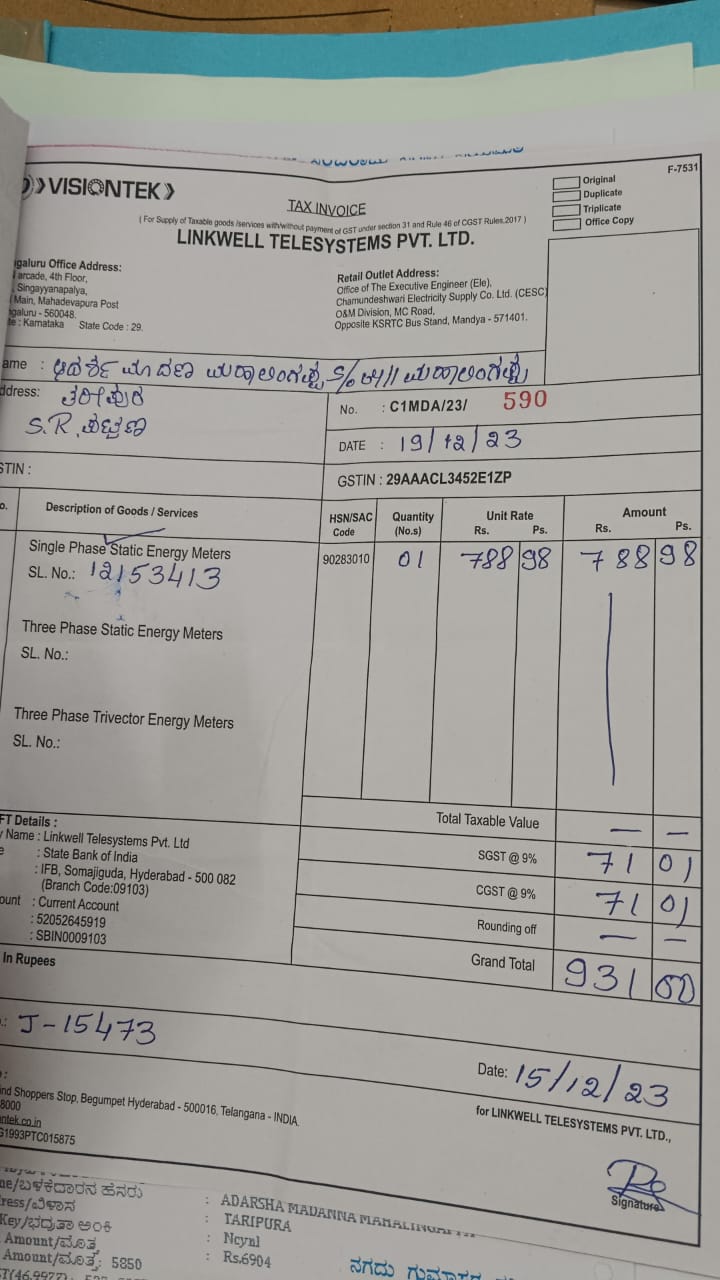 VISIONTEK
F-7531
Original
Duplicate
Triplicate
Office Copy
TAX INVOICE
( For Supply of Taxable goods /services with/without payment of GST under section 31 and Rule 46 of CGST Rules,2017 )
LINKWELL TELESYSTEMS PVT. LTD.
galuru Office Address:
arcade, 4th Floor,
Singayyanapalya,
Main, Mahadevapura Post
galuru - 560048.
te : Karnataka State Code : 29.
Retail Outlet Address:
Office of The Executive Engineer (Ele),
Chamundeshwari Electricity Supply Co. Ltd. (CESC)
O&M Division, MC Road,
Opposite KSRTC Bus Stand, Mandya - 571401.
ame : ಆದರ್ಶ ಮಾದಣ ಮಹಾಲಿಂಗಪ್ಪ S/o ಮಹಾಲಿಂಗಪ್ಪ
ddress: ತರೀಪುರ
S.R.
No. : C1MDA/23/ 590
DATE : 19/12/23
STIN :
GSTIN : 29AAACL3452E1ZP
o. Description of Goods / Services HSN/SAC Code Quantity (No.s) Unit Rate Rs. Ps. Amount Rs. Ps.
Single Phase Static Energy Meters 90283010 01 788 98 788 98
SL. No.: 12153413
Three Phase Static Energy Meters
SL. No.:
Three Phase Trivector Energy Meters
SL. No.:
Total Taxable Value — —
SGST @ 9% 71 01
CGST @ 9% 71 01
Rounding off — —
Grand Total 931 00
FT Details :
Name : Linkwell Telesystems Pvt. Ltd
e : State Bank of India
: IFB, Somajiguda, Hyderabad - 500 082
(Branch Code:09103)
ount : Current Account
: 52052645919
: SBIN0009103
In Rupees
.: J-15473
Date: 15/12/23
ind Shoppers Stop, Begumpet Hyderabad - 500016, Telangana - INDIA.
8000
ntek.co.in
G1993PTC015875
for LINKWELL TELESYSTEMS PVT. LTD.,
Signature
me/ಬಳಕೆದಾರನ ಹೆಸರು : ADARSHA MADANNA MAHALINGAPPA
ress/ವಿಳಾಸ : TARIPURA
Key/ಭದ್ರತಾ ಅಂಕಿ : Ncynl
Amount/ಮೊತ್ತ : Rs.6904
Amount/ಮೊತ್ತ: 5850
ನಗದು